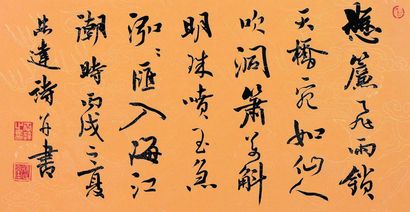 懸簾飛雨鎖
天橋宛如仙人
吹洞簫万斛
明珠噴玉急
匯入海江
潮時丙戌之夏
達詩并書